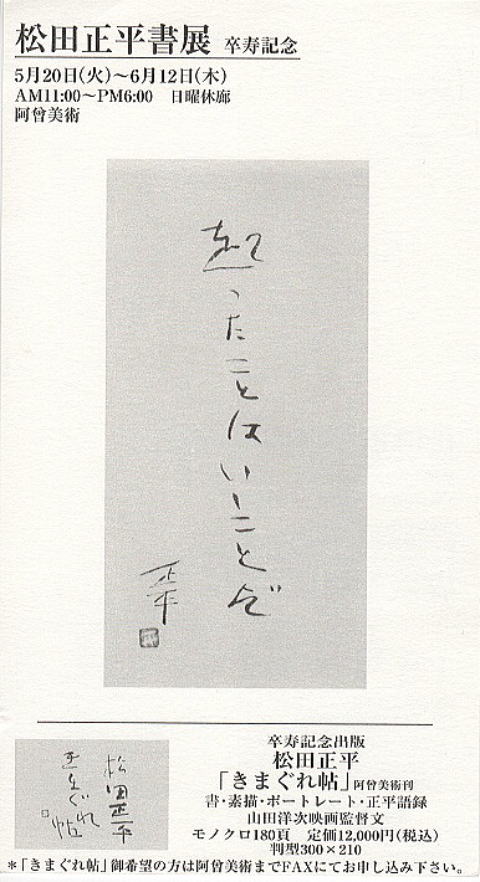 松田正平書展 卒寿記念
5月20日(火)〜6月12日(木)
AM11:00〜PM6:00 日曜休廊
阿曾美術
起ったことはいーことだ
正平
卒寿記念出版
松田正平
「きまぐれ帖」阿曾美術刊
書・素描・ポートレート・正平語録
山田洋次映画監督文
モノクロ180頁 定価12,000円(税込)
判型300×210
松田正平
きまぐれ
帖
*「きまぐれ帖」御希望の方は阿曾美術までFAXにてお申し込み下さい。